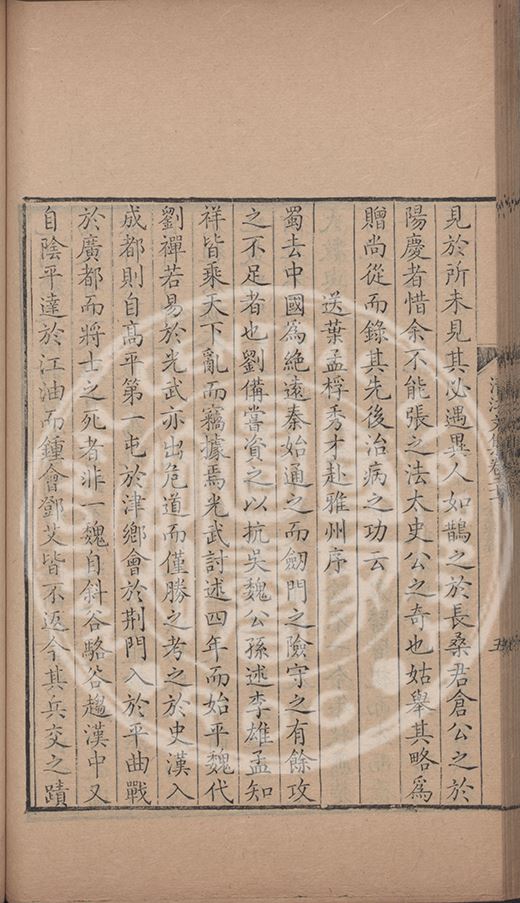 見於所未見其必遇異人如鵲之於長桑君倉公之於
陽慶者惜余不能張之法太史公之奇也姑舉其略爲
贈尚從而錄其先後治病之功云
送葉孟桴秀才赴雅州序
蜀去中國爲絶遠秦始通之而劒門之險守之有餘攻
之不足者也劉備嘗資之以抗吳魏公孫述李雄孟知
祥皆乘天下亂而竊據焉光武討述四年而始平魏代
劉禪若易於光武亦出危道而僅勝之考之於史漢入
成都則自高平第一屯於津鄉會於荆門入於平曲戰
於廣都而將士之死者非一魏自斜谷駱谷趨漢中又
自陰平達於江油而鍾會鄧艾皆不返今其兵交之蹟